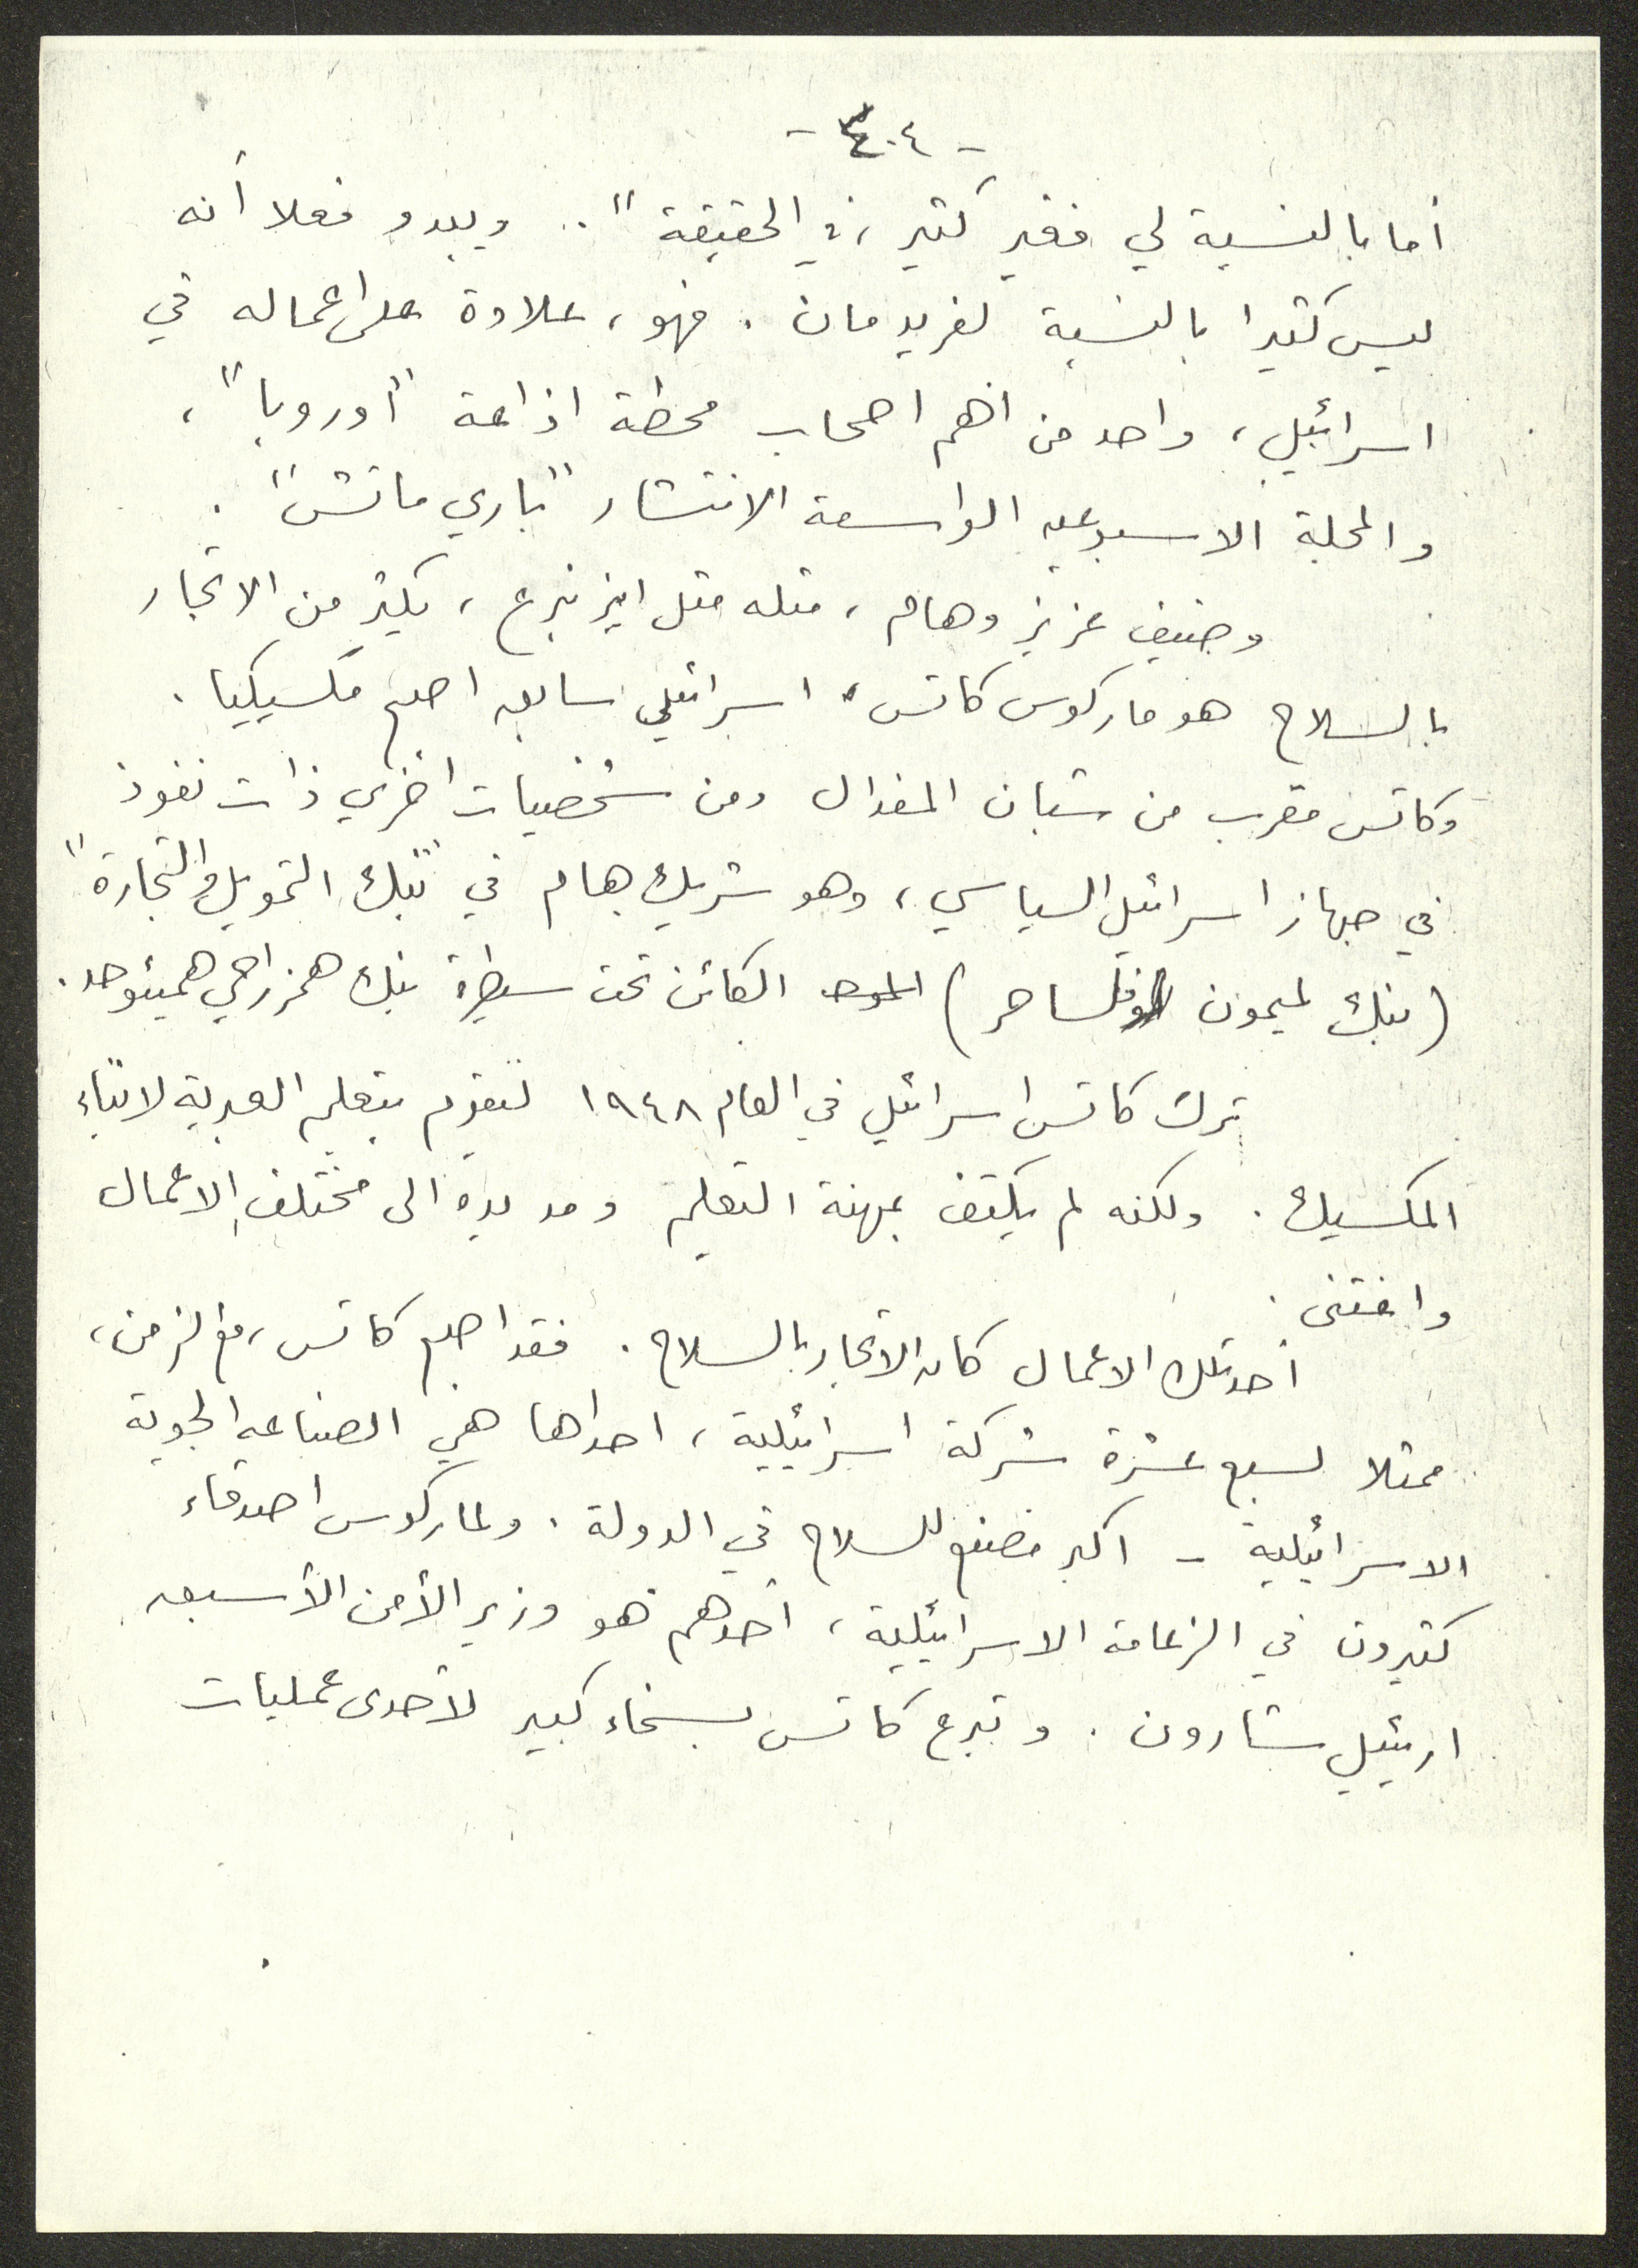 - ٤٠٤ -
أما بالنسبة لي فغير كثير، في الحقيقة".. ويبدو فعلا أنه
ليس كثيرا بالنسبة لفريدمان. فهو، علاوة على اعماله في
اسرائيل، واحد من اهم اصحاب محطة اذاعة "أوروبا"،
والمجلة الاسبوعية الواسعة الانتشار "باري ماتش".
وضيف عزيز وهام، مثله مثل ايزنبرغ، يكثر من الاتجار
بالسلاح هو ماركوس كاتس، اسرائيلي سابق اصبح مكسيكيا.
وكاتس مقرب من شبان المفدال ومن شخصيات اخرى ذات نفوذ
في جهاز اسرائيل السياسي، وهو شريك هام في "بنك التمويل والتجارة"
(بنك لميمون ولساحر) الكائن تحت سيطرة بنك همزراحي همیئوحد.
ترك كاتس اسرائيل في العام ١٩٤٨ ليقوم بتعليم العبرية لابناء
المكسيك. ولكنه لم يكتف بمهنة التعليم ومد يده الى مختلف الاعمال
واغتنى.
أحد تلك الاعمال كان الاتجار بالسلاح. فقد اصبح كاتس، مع الزمن،
ممثلا لسبع عشرة شركة اسرائيلية، احداها هي الصناعة الجوية
الاسرائيلية - اكبر مصنع للسلاح في الدولة. ولماركوس اصدقاء
كثيرون في الزعامة الاسرائيلية، أحدهم هو وزير الأمن الأسبق
ارئيل شارون. وتبرع كاتس بسخاء كبير لأحدى عمليات